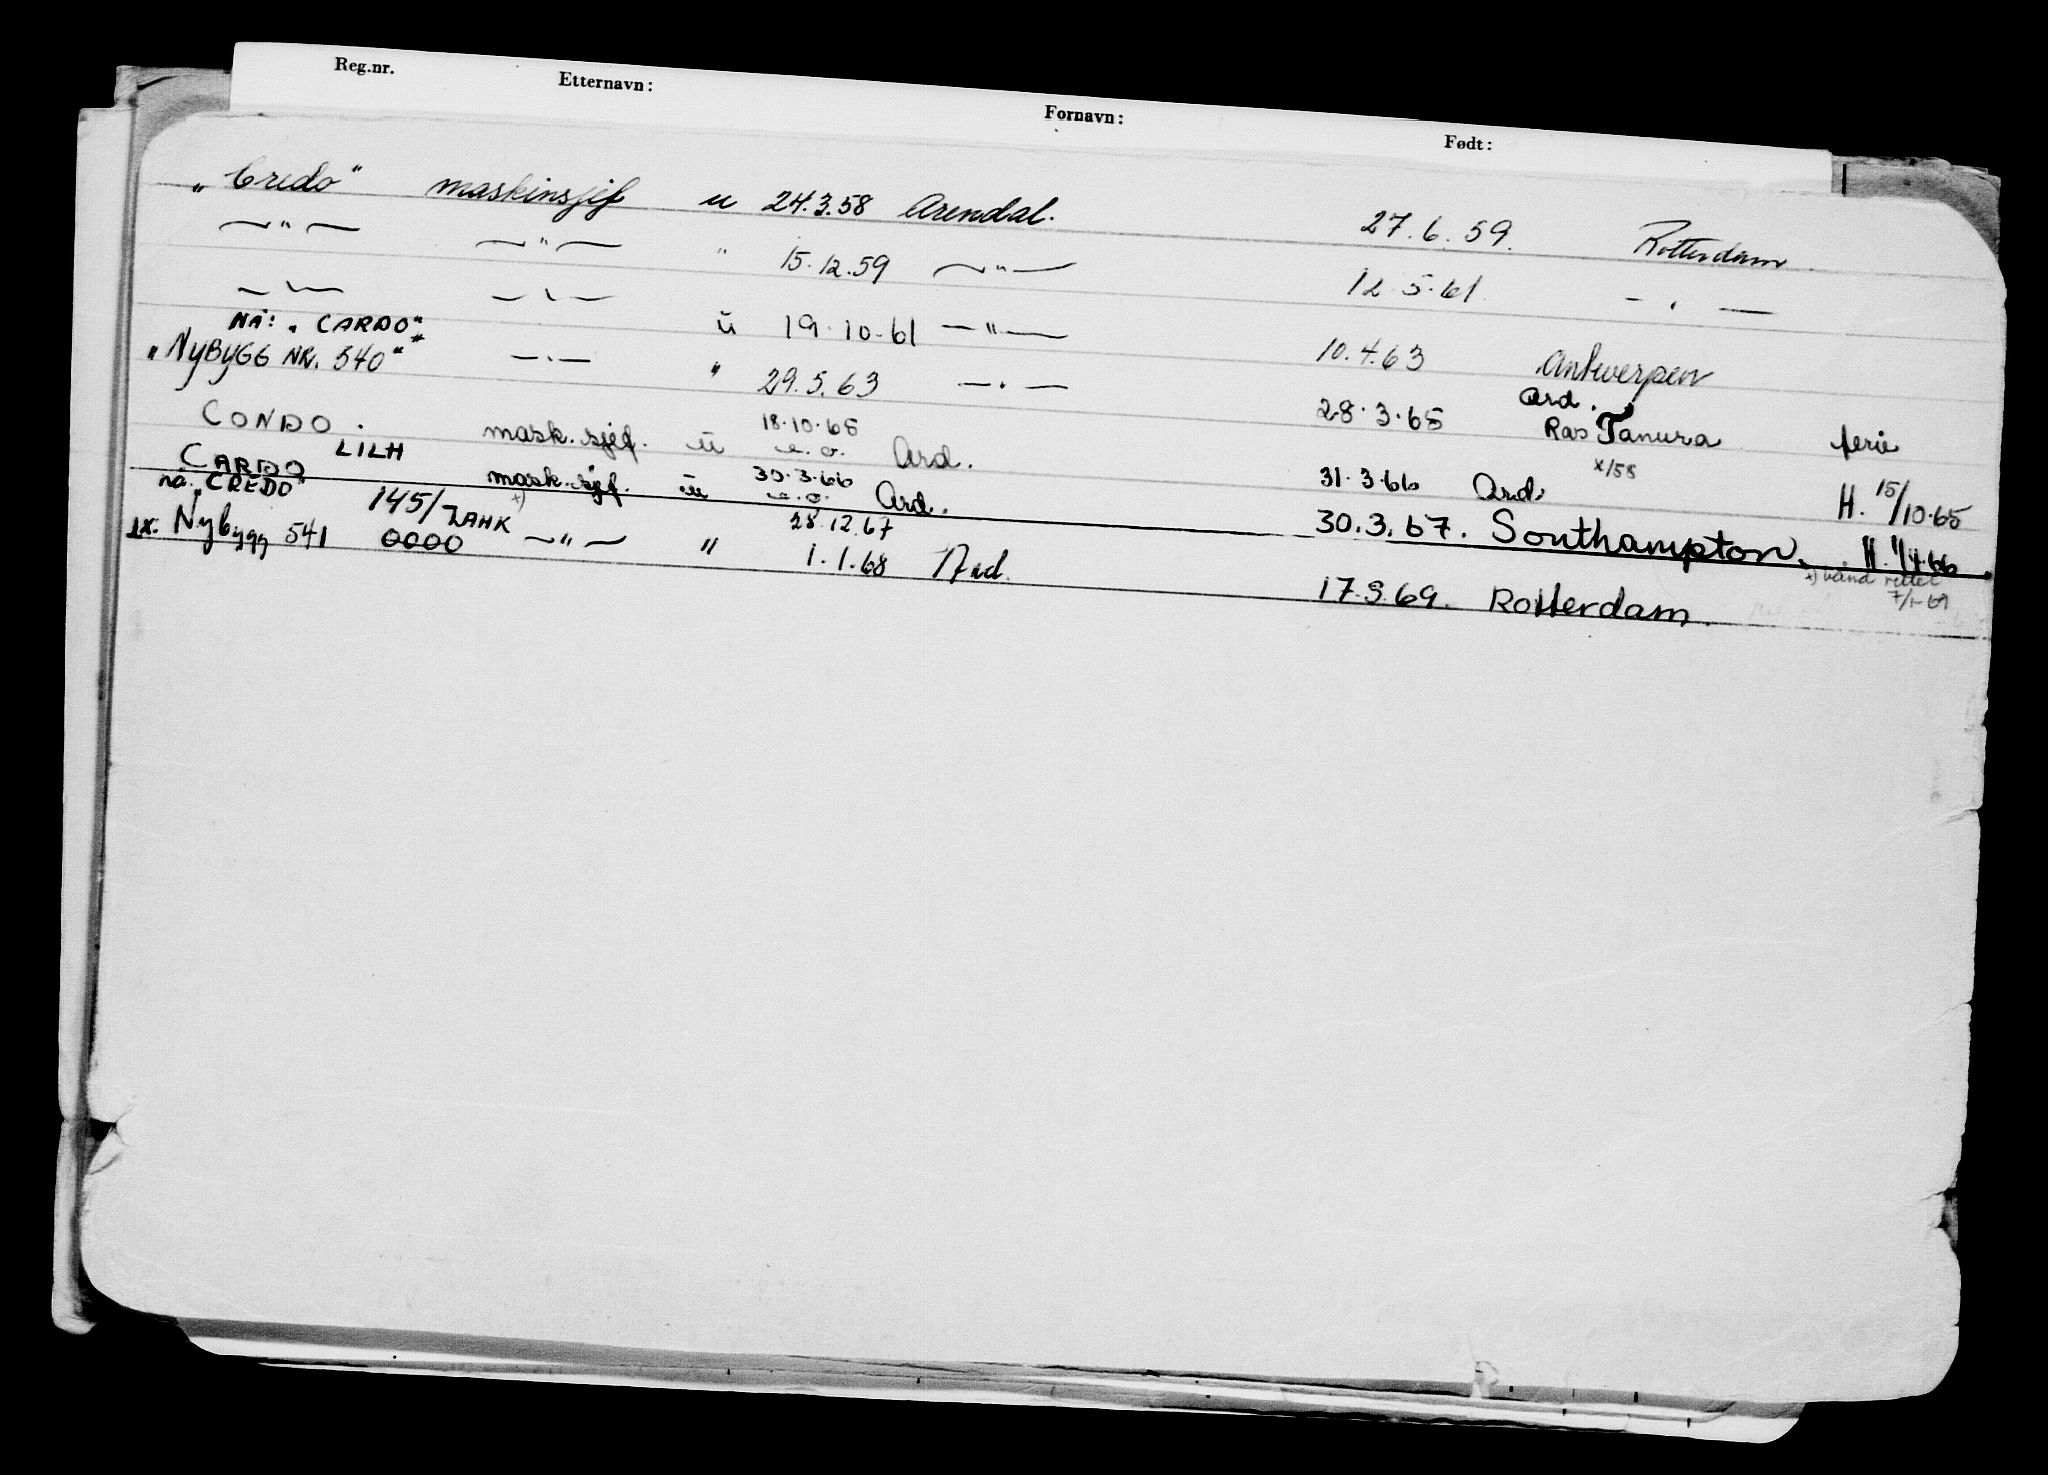 Reg.nr. Etternavn: Fornavn: Født:
„Credo" maskinsjef u 24.3.58 Arendal. 27.6.59. Rotterdam
—"— —"— " 15.12.59 —"— 12.5.61 —.—
—"— —"— ü 19.10.61 —"— 10.4.63 Antwerpen
NÅ: „CARDO"
„NyBYGG NR. 540" —.— " 29.5.63 —.— 28.3.65 Ard. Ras Tanura ferie
x/58
CONDO. LILH mask.sjef. ü 18.10.65 Ard. 31.3.66 Ard. H. 15/10.65
CARDO mask.sjef. ü 30.3.66 Ard. 30.3.67. Southampton. H. 1/4.66
nå „CREDO" 145/ZAHK x) 28.12.67
ex. Nybygg 541 0000 —"— " 1.1.68 Ard. 17.9.69. Rotterdam.
7/1-69